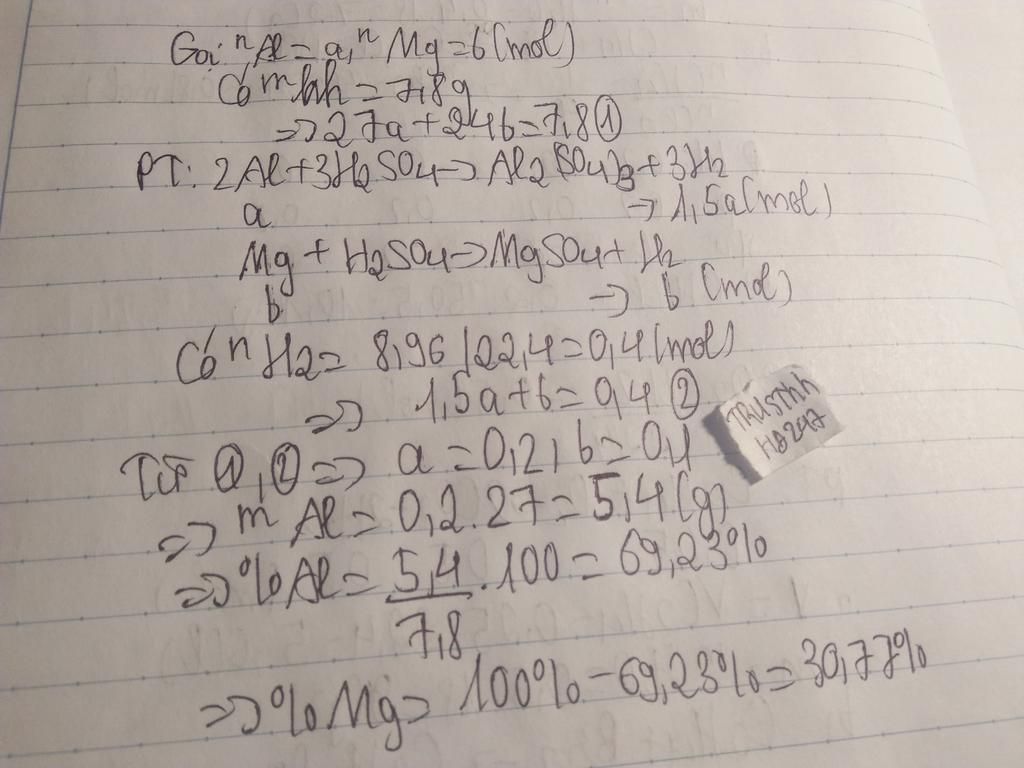 Gọi: nAl = a, nMg = b (mol)
Có mhh = 7,8g
=> 27a + 24b = 7,8 ①
PT: 2Al + 3H2SO4 -> Al2(SO4)3 + 3H2
a -> 1,5a (mol)
Mg + H2SO4 -> MgSO4 + H2
b -> b (mol)
Có nH2 = 8,96/22,4 = 0,4 (mol)
=> 1,5a + b = 0,4 ②
TRUSTNhh
HĐ247
Từ ①, ② => a = 0,2, b = 0,1
=> mAl = 0,2.27 = 5,4 (g)
=> %Al = 5,4/7,8 . 100 = 69,23%
=> %Mg = 100% - 69,23% = 30,77%